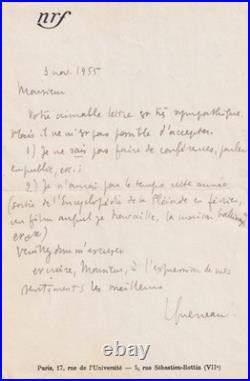 nrf
3 nov. 1955
Monsieur
Votre aimable lettre est très sympathique.
Mais il ne m'est pas possible d'accepter.
1) Je ne sais pas faire de conférences, parler
en public, etc.;
2) Je n'aurai pas le temps cette année
(sortie de l'Encyclopédie de la Pléiade en février,
un film auquel je travaille, la maison
Veuillez donc m'excuser
et croire, Monsieur, à l'expression de mes
sentiments les meilleurs
Queneau
Paris, 17, rue de l'Université — 5, rue Sébastien-Bottin (VIIe)